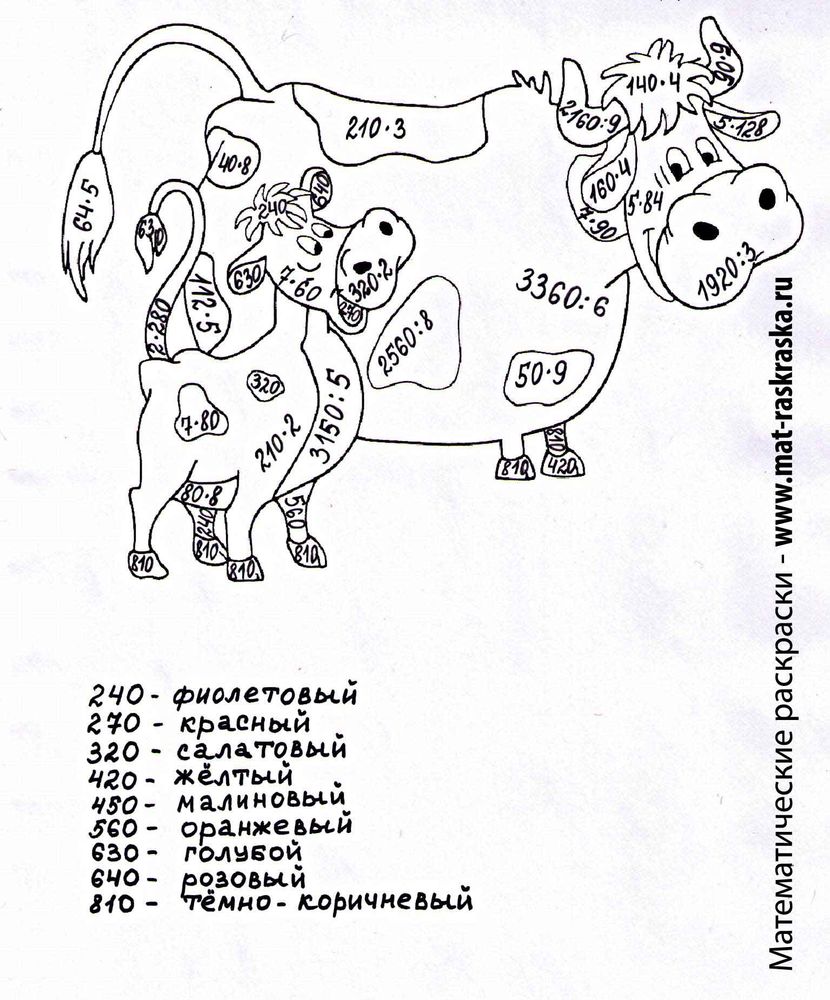 90·9
140·4
2160:9
5·128
210·3
40·8
160·4
5·84
7·90
64·5
640
240
630
630
7·60
320·2
270
1920:3
3360:6
112·5
2·280
2560:8
50·9
320
7·80
210·2
3150:5
810
810
420
80·8
240
560
810
810
810
810
240 - фиолетовый
270 - красный
320 - салатовый
420 - жёлтый
450 - малиновый
560 - оранжевый
630 - голубой
640 - розовый
810 - тёмно-коричневый
Математические раскраски - www.mat-raskraska.ru